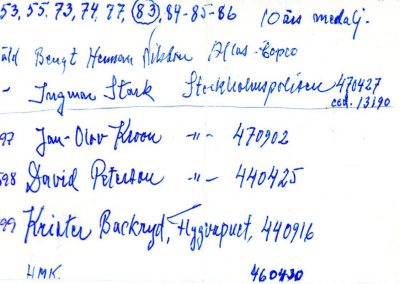 53, 55. 73, 74, 77, 83, 84-85-86 10 års medalj.
Bengt Herman Nilsson Atlas-Copco
- Ingmar Stark Stockholmspolisen 470427
13190
97 Jan-Olov Kroon -"- 470902
598 David Peterson -"- 440425
99 Krister Backryd, Flygvapnet, 440916
HMK. 460430